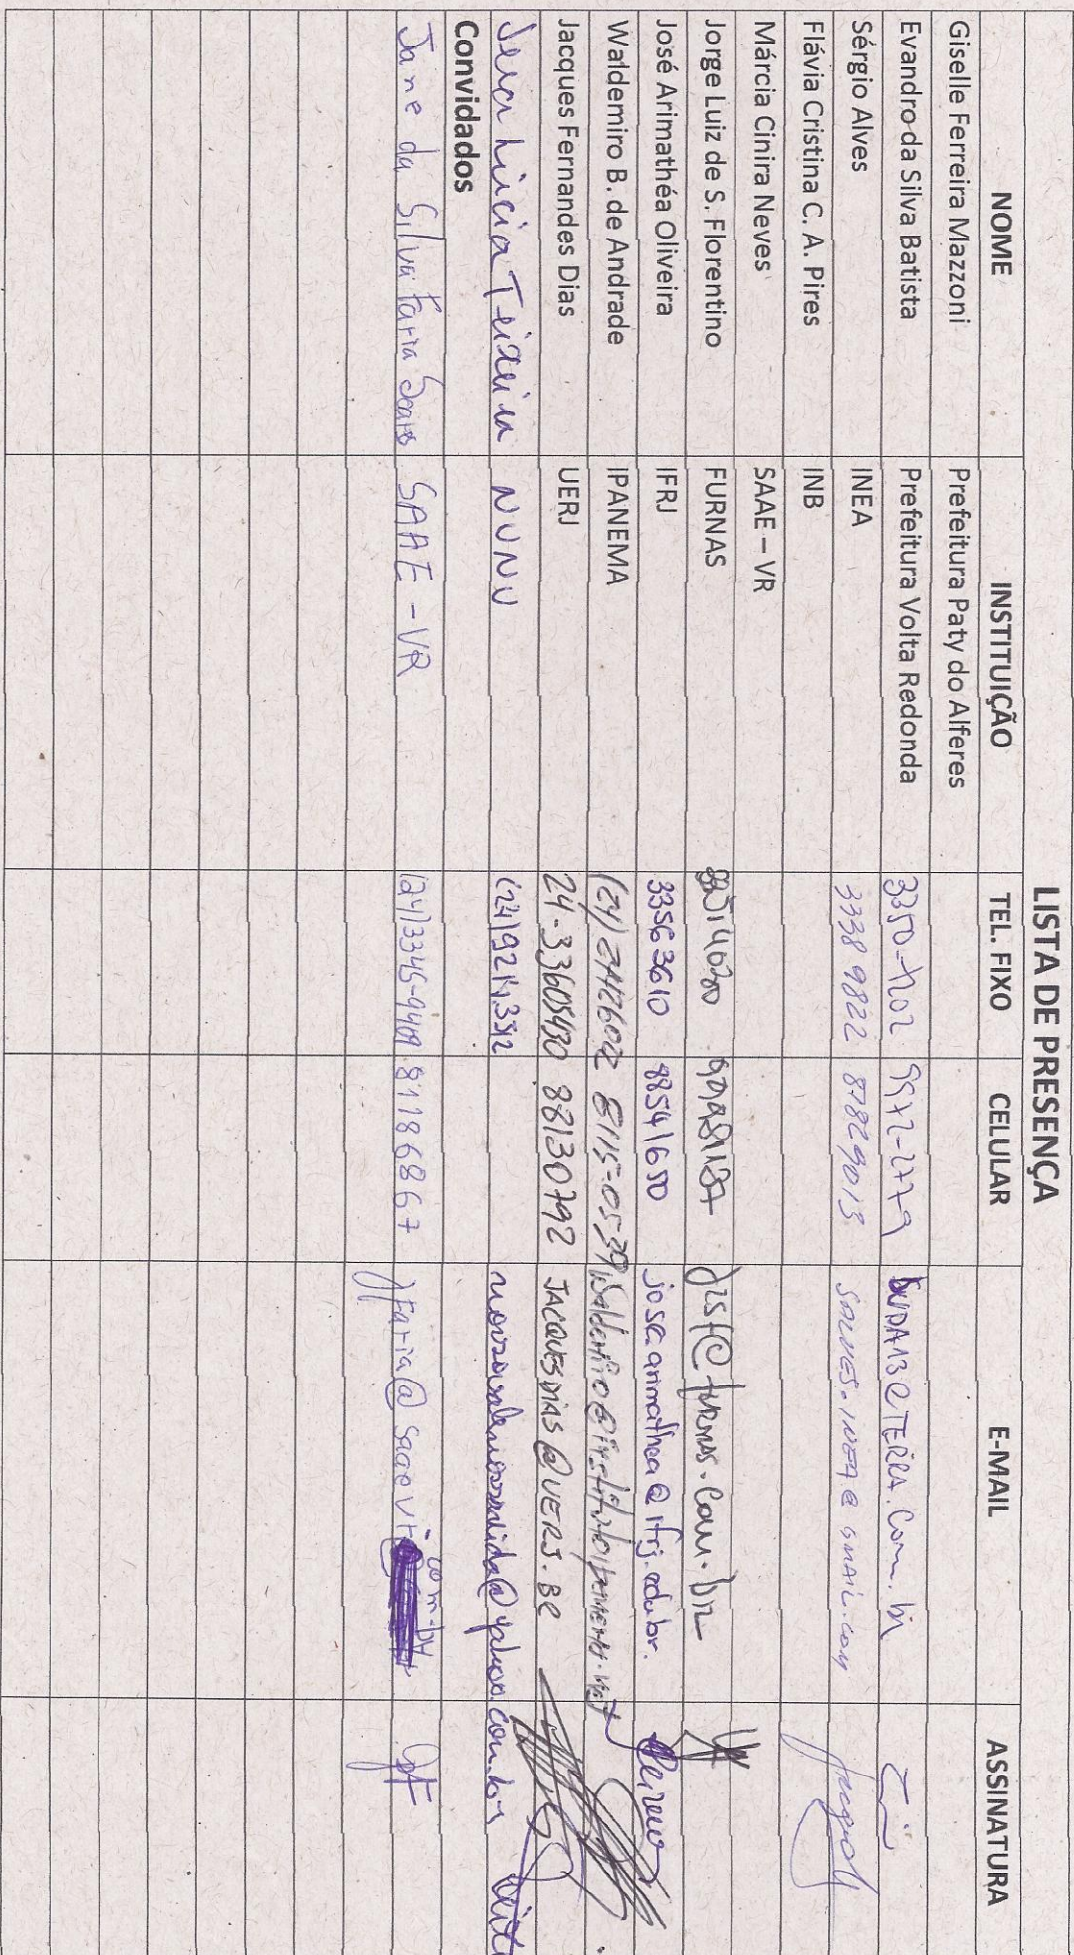 LISTA DE PRESENÇA
NOME INSTITUIÇÃO TEL. FIXO CELULAR E-MAIL ASSINATURA
Giselle Ferreira Mazzoni Prefeitura Paty do Alferes
Evandro da Silva Batista Prefeitura Volta Redonda 3350-7102 9972-2779
Sérgio Alves INEA 3338 9822 87829013 SALVES.INEA@GMAIL.COM
Flávia Cristina C. A. Pires INB
Márcia Cinira Neves SAAE – VR
Jorge Luiz de S. Florentino FURNAS jlsf@furnas.com.br
José Arimathéa Oliveira IFRJ 3356 3610 88541650 jose.arimathea@ifrj.edu.br.
Waldemiro B. de Andrade IPANEMA 8115-0539
Jacques Fernandes Dias UERJ 24-33605430 88130792 JACQUESDIAS@UERJ.BR
Vera Lúcia Teixeira
Convidados
Jane da Silva Faria SAAE-VR 81186867 jfaria@saaevr com.br